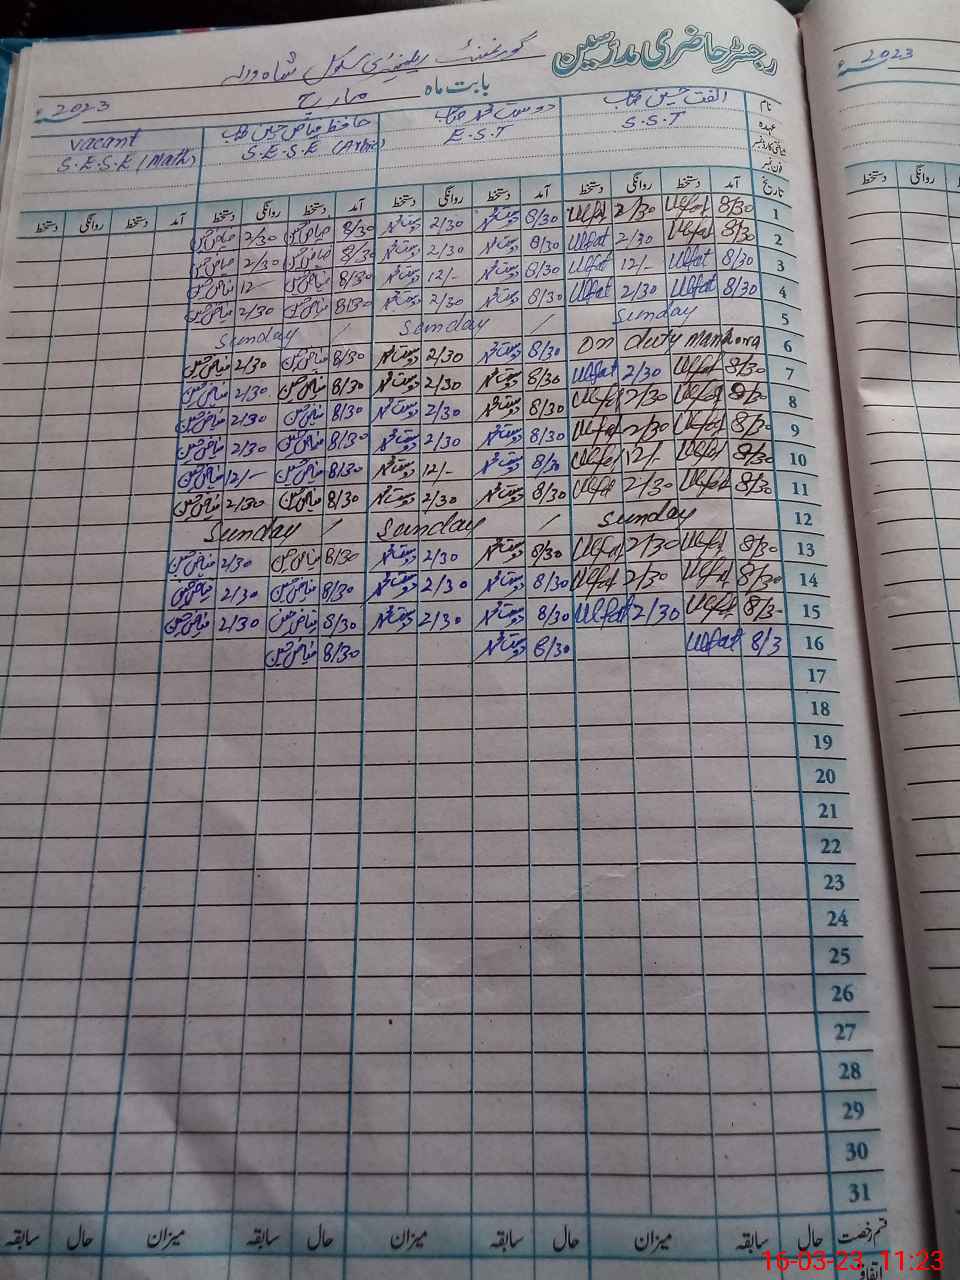 رجسٹر حاضری مدرسین گورنمنٹ ایلیمنٹری سکول شاہ والہ
بابت ماہ مارچ 2023ء
2023
نام الفت حسین صاحب دوست محمد صاحب حافظ فیاض حسین صاحب vacant
عہدہ S.S.T E.S.T S.E.S.E (Arbic) S.E.S.E (Math)
تاریخ آمد دستخط روانگی دستخط آمد دستخط روانگی دستخط آمد دستخط روانگی دستخط آمد دستخط روانگی دستخط
روانگی دستخط
1 8/30 Ulfat 2/30 Ulfat 8/30 دوست محمد 2/30 دوست محمد 8/30 فیاض حسین 2/30 فیاض حسین
2 8/30 Ulfat 2/30 Ulfat 8/30 دوست محمد 2/30 دوست محمد 8/30 فیاض حسین 2/30 فیاض حسین
3 8/30 Ulfat 12/- Ulfat 8/30 دوست محمد 12/- دوست محمد 8/30 فیاض حسین 12/- فیاض حسین
4 8/30 Ulfat 2/30 Ulfat 8/30 دوست محمد 2/30 دوست محمد 8/30 فیاض حسین 2/30 فیاض حسین
5 Sunday / Sunday / Sunday
6 on duty Mankera 8/30 دوست محمد 2/30 دوست محمد 8/30 فیاض حسین 2/30 فیاض حسین
7 8/30 Ulfat 2/30 Ulfat 8/30 دوست محمد 2/30 دوست محمد 8/30 فیاض حسین 2/30 فیاض حسین
8 8/30 Ulfat 2/30 Ulfat 8/30 دوست محمد 2/30 دوست محمد 8/30 فیاض حسین 2/30 فیاض حسین
9 8/30 Ulfat 2/30 Ulfat 8/30 دوست محمد 2/30 دوست محمد 8/30 فیاض حسین 2/30 فیاض حسین
10 8/30 Ulfat 12/- Ulfat 8/30 دوست محمد 12/- دوست محمد 8/30 فیاض حسین 12/- فیاض حسین
11 8/30 Ulfat 2/30 Ulfat 8/30 دوست محمد 2/30 دوست محمد 8/30 فیاض حسین 2/30 فیاض حسین
12 Sunday / Sunday / Sunday
13 8/30 Ulfat 2/30 Ulfat 8/30 دوست محمد 2/30 دوست محمد 8/30 فیاض حسین 2/30 فیاض حسین
14 8/30 Ulfat 2/30 Ulfat 8/30 دوست محمد 2/30 دوست محمد 8/30 فیاض حسین 2/30 فیاض حسین
15 8/3- Ulfat 2/30 Ulfat 8/30 دوست محمد 2/30 دوست محمد 8/30 فیاض حسین 2/30 فیاض حسین
16 8/3 Ulfat 8/30 دوست محمد 8/30 فیاض حسین
17
18
19
20
21
22
23
24
25
26
27
28
29
30
31
قسم رخصت حال سابقہ میزان حال سابقہ میزان حال سابقہ میزان حال سابقہ
16-03-23, 11:23